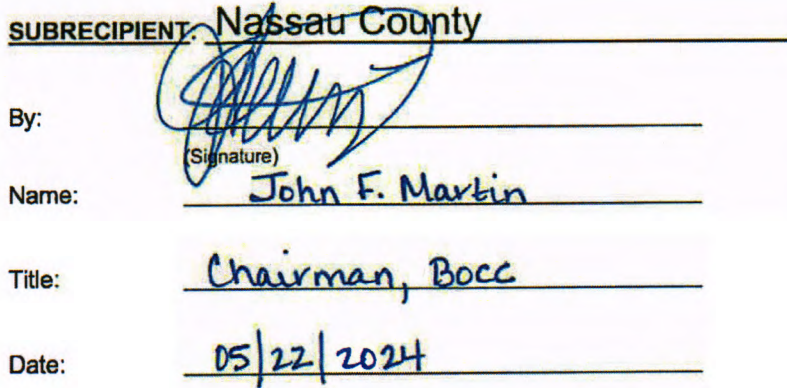 SUBRECIPIENT: Nassau County
By:
(Signature)
Name: John F. Martin
Title: Chairman, BOCC
Date: 05/22/2024